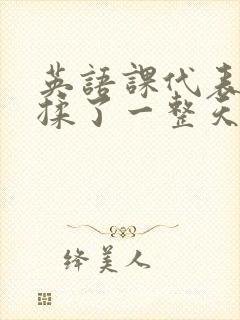 英語課代表
揉了一整天
绛美人